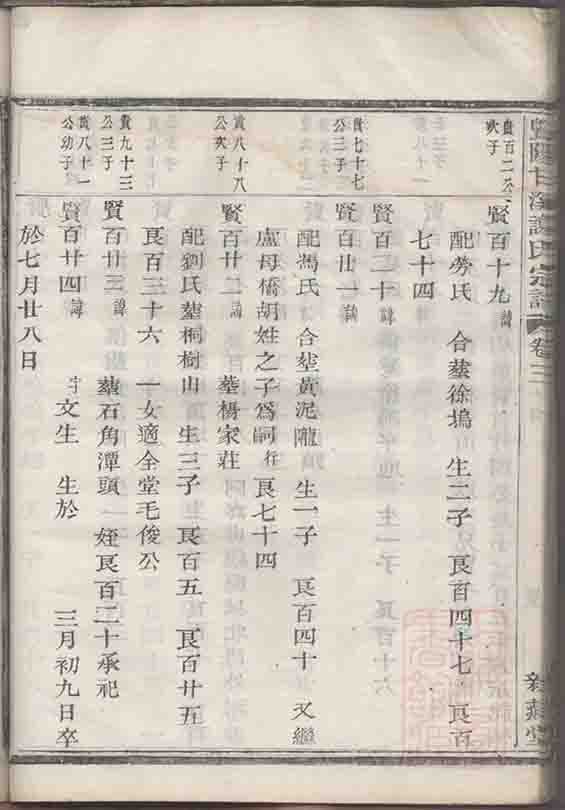 暨陽甘溪謝氏宗譜 卷三
貴百二公次子
賢百十九 諱
配勞氏 合塟徐塢 生二子 良百四十七 良百
七十四
賢百二十 諱
貴七十七公三子
賢百廿一 諱
配馮氏 合塟黃泥隴 生一子 良百四十 又繼
盧母橋胡姓之子爲嗣行良七十四
貴八十八公次子
賢百廿二 諱 塟楊家莊
配劉氏塟桐樹山 生三子 良百五 良百廿五
良百三十六 一女適全堂毛俊公
貴九十三公三子
賢百廿三 諱 塟石角潭頭 一姪良百二十承祀
貴八十一公幼子
賢百廿四 諱 字文生 生於 三月初九日卒
於七月廿八日